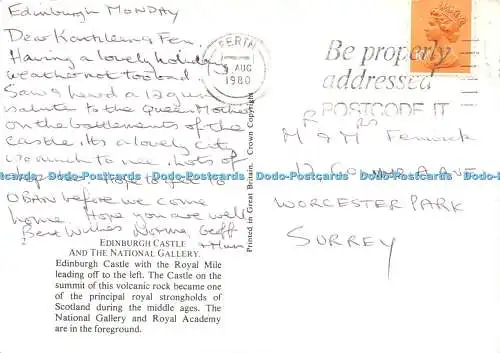 Edinburgh MONDAY
Dear Kathleen & Fen.
Having a lovely holiday
weather not too bad.
Saw & heard a 12 gun
salute to the Queen Mother
on the battlements of the
castle. Its a lovely city
so much to see. Lots of
Hope to get to
OBAN before we come
home. Hope you are well
Best Wishes Norma, Geoff
2
EDINBURGH CASTLE
AND THE NATIONAL GALLERY.
Edinburgh Castle with the Royal Mile
leading off to the left. The Castle on the
summit of this volcanic rock became one
of the principal royal strongholds of
Scotland during the middle ages. The
National Gallery and Royal Academy
are in the foreground.
Printed in Great Britain. Crown Copyright
PERTH
AUG
1980
Be properly
addressed
POSTCODE IT
MR & MRS Fenwick
AVE
WORCESTER PARK
SURREY
Dodo-Postcards Dodo-Postcards Dodo-Postcards Dodo-Postcards Dodo-Postcards